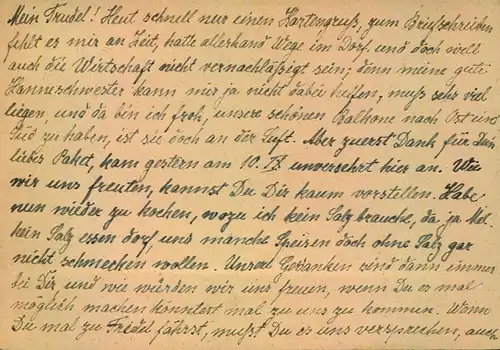 Mein Trudel! Heut schnell nur einen Kartengruß, zum Briefschreiben
fehlt es mir an Zeit, hatte allerhand Wege im Dorf, und doch will
auch die Wirtschaft nicht vernachläßigt sein; denn meine gute
Hanneschwester kann mir ja nicht dabei helfen, muß sehr viel
liegen, und da bin ich froh, unsere schönen Balkone nach Ost und
Süd zu haben, ist sie doch an der Luft. Aber zuerst Dank für Dein
liebes Paket, kam gestern am 10. IX unversehrt hier an. Wie
wir uns freuten, kannst Du Dir kaum vorstellen. Habe
nun wieder zu kochen, wozu ich kein Salz brauche, da ja
kein Salz essen darf, und manche Speisen doch ohne Salz gar
nicht schmecken wollen. Unsere Gedanken sind dann immer
bei Dir, und wie würden wir uns freuen, wenn Du es mal
möglich machen könntest mal zu uns zu kommen. Wenn
Du mal zu Friedel fährst, mußt Du es uns versprechen, auch